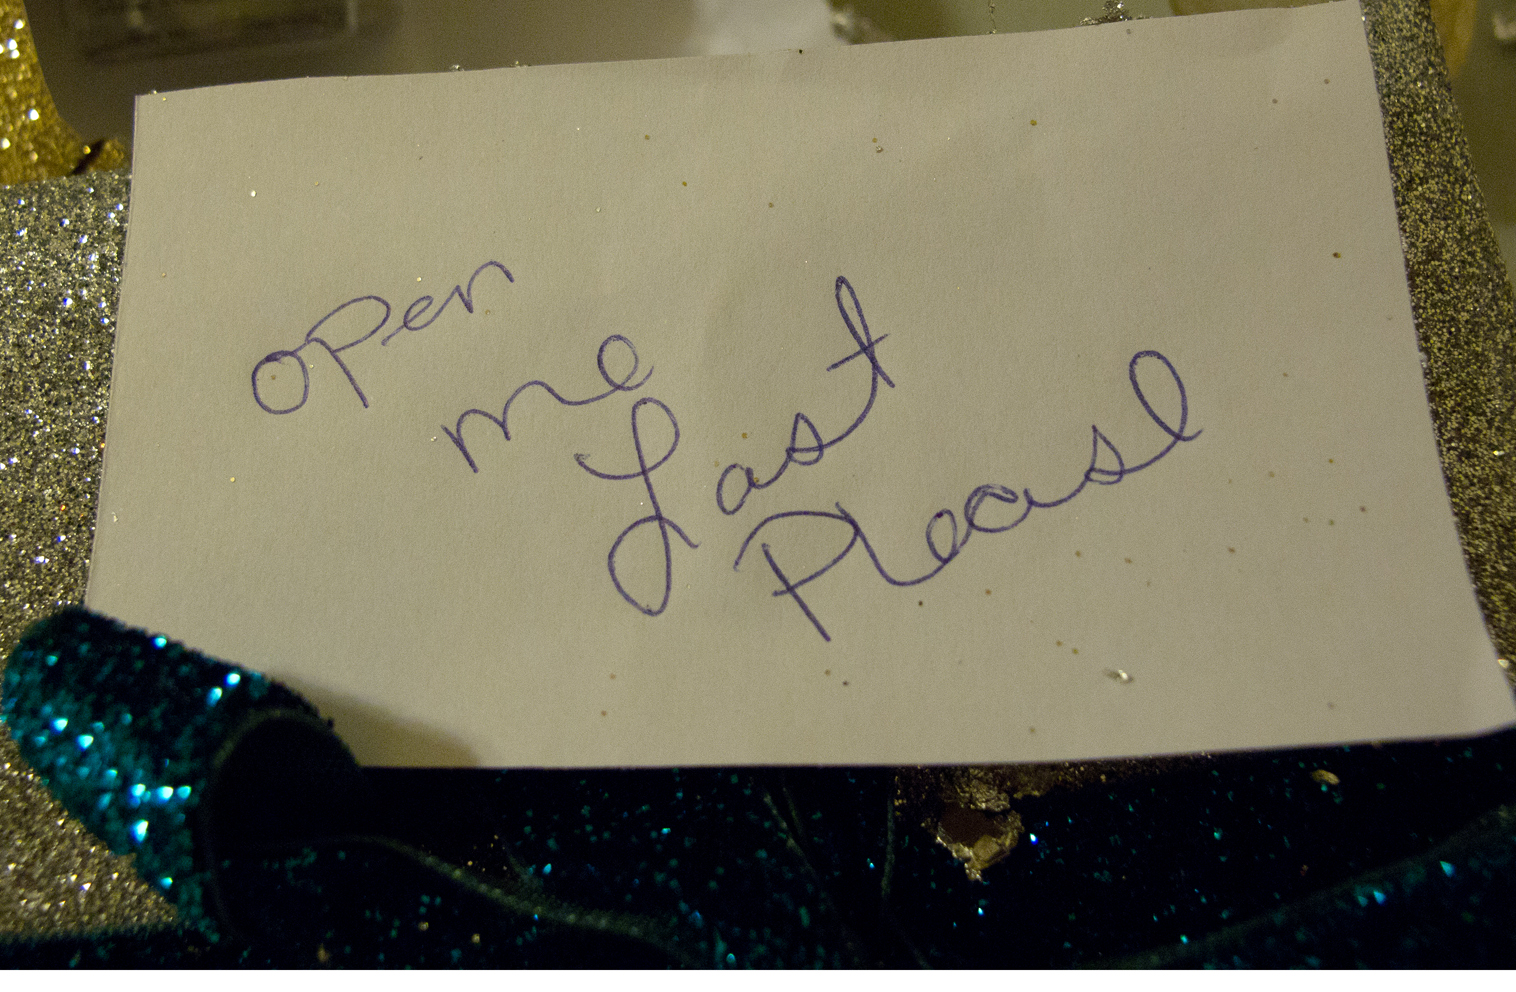 open
me
Last
Please